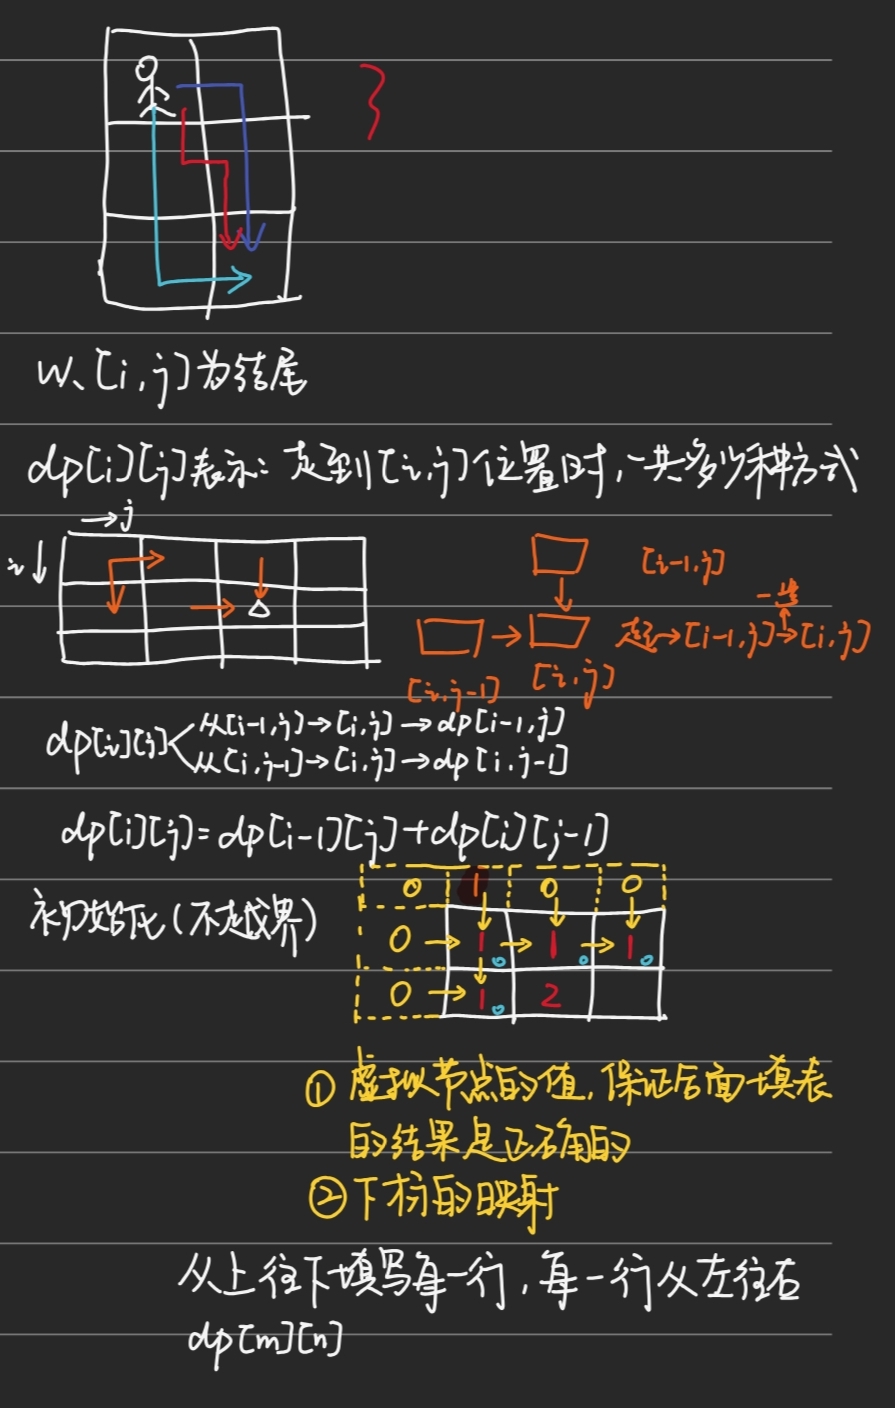 3
以[i,j]为结尾
dp[i][j]表示：走到[i,j]位置时，一共多少种方式
→j
i↓
[i-1,j]
一步
起→[i-1,j]→[i,j]
[i,j-1] [i,j]
dp[i][j]
从[i-1,j]→[i,j]→dp[i-1,j]
从[i,j-1]→[i,j]→dp[i,j-1]
dp[i][j]=dp[i-1][j]+dp[i][j-1]
初始化(不越界)
0 1 0 0
0 → 1 → 1 → 1
0 → 1 2
① 虚拟节点的值，保证后面填表
的结果是正确的
② 下标的映射
从上往下填写每一行，每一行从左往右
dp[m][n]